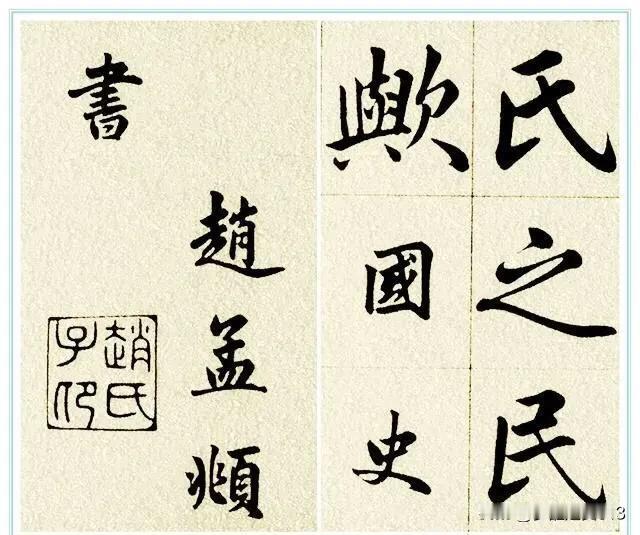 氏之民
歟國史
趙孟頫
書
趙氏子印